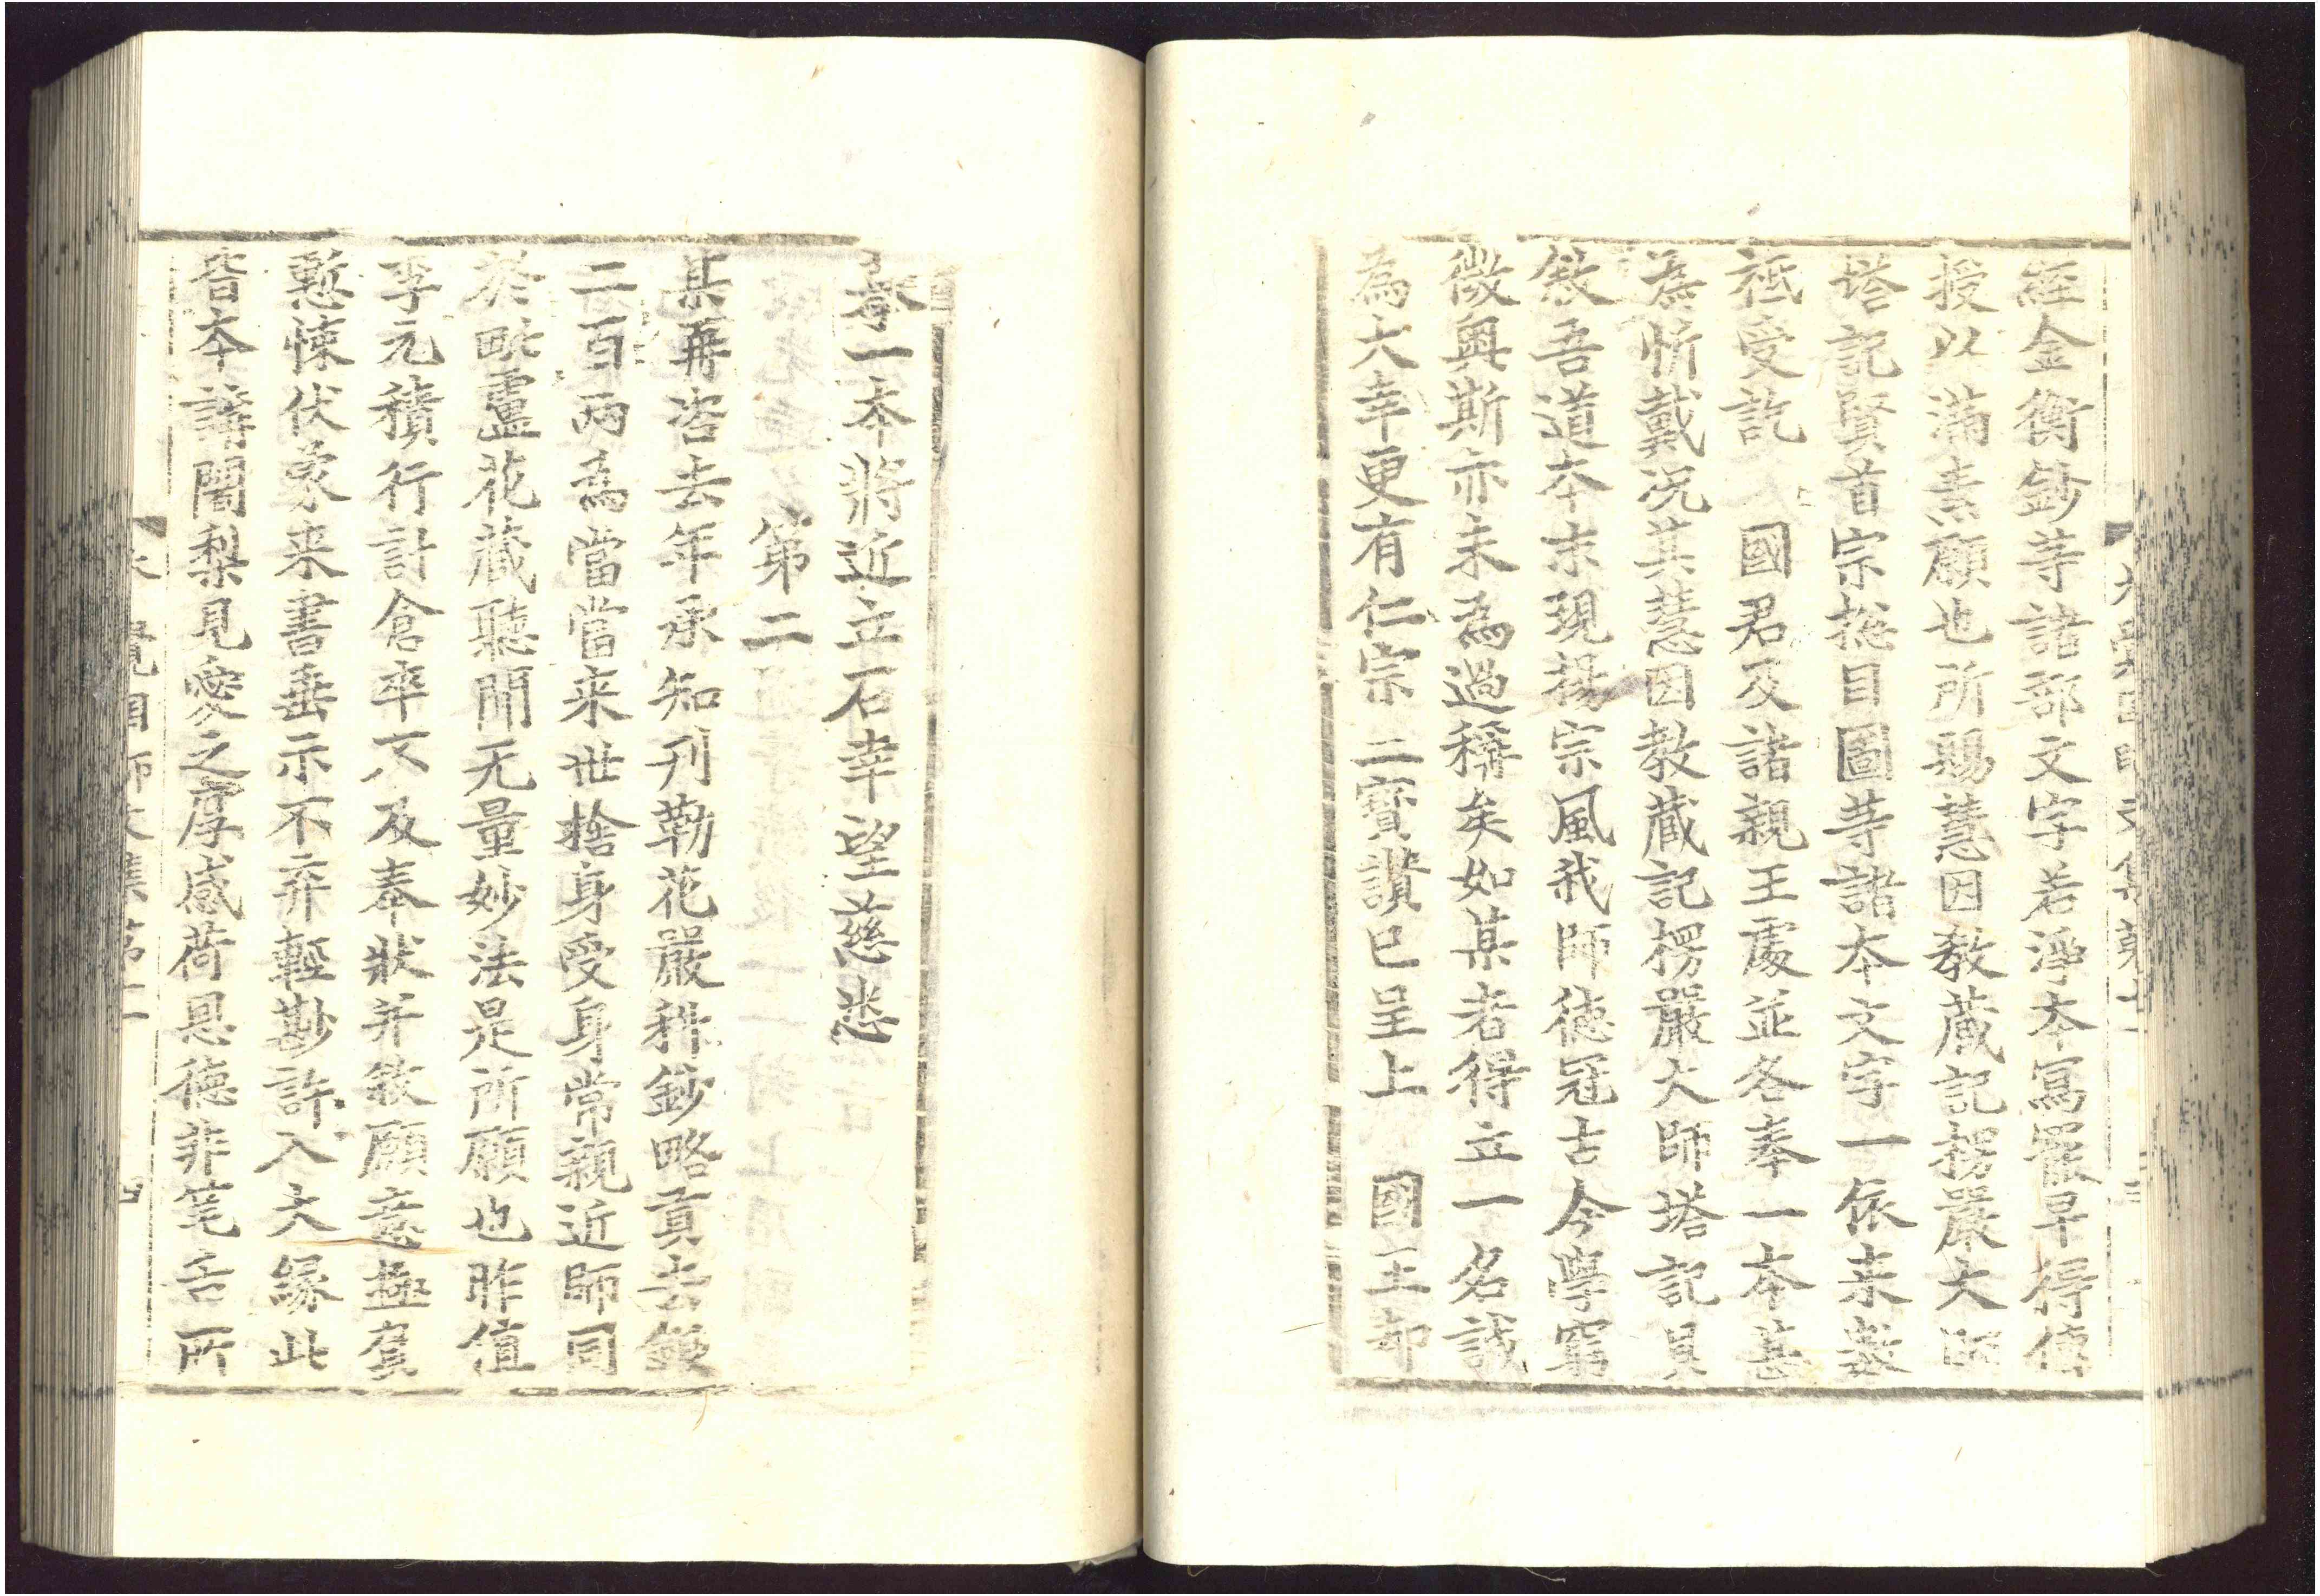 経金衡鈔䓁諸部文字若淨本寫罷早得傳
授以滿素願也所賜慧因教藏記楞嚴大師
塔記賢首宗揔目圖䓁諸本文字一依来教
祗受訖 國君及諸親王處並各奉一本甚
為忻戴況其慧因教藏記楞嚴大師塔記具
叙吾道本末現揚宗風我師德冠古今學窮
微奥斯亦未為過稱矣如某者得立一名誠
為大幸更有仁宗 三寳讃已呈上 國王却
大覺國師文集第十
承一本將近立石幸望慈悉
第二
某再咨去年承知刊勒花嚴科鈔略貢去銀
二百兩為當當来世捨身受身常親近師同
於此盧花蔵聽聞无量妙法是所願也昨值
李元積行計倉卒不及奉狀并叙願意極實
慙悚伏蒙来書垂示不弃輕尠許入大緣此
昔本講闍梨見愛之厚感荷恩德非筆舌所
大覺國師文集第十 四